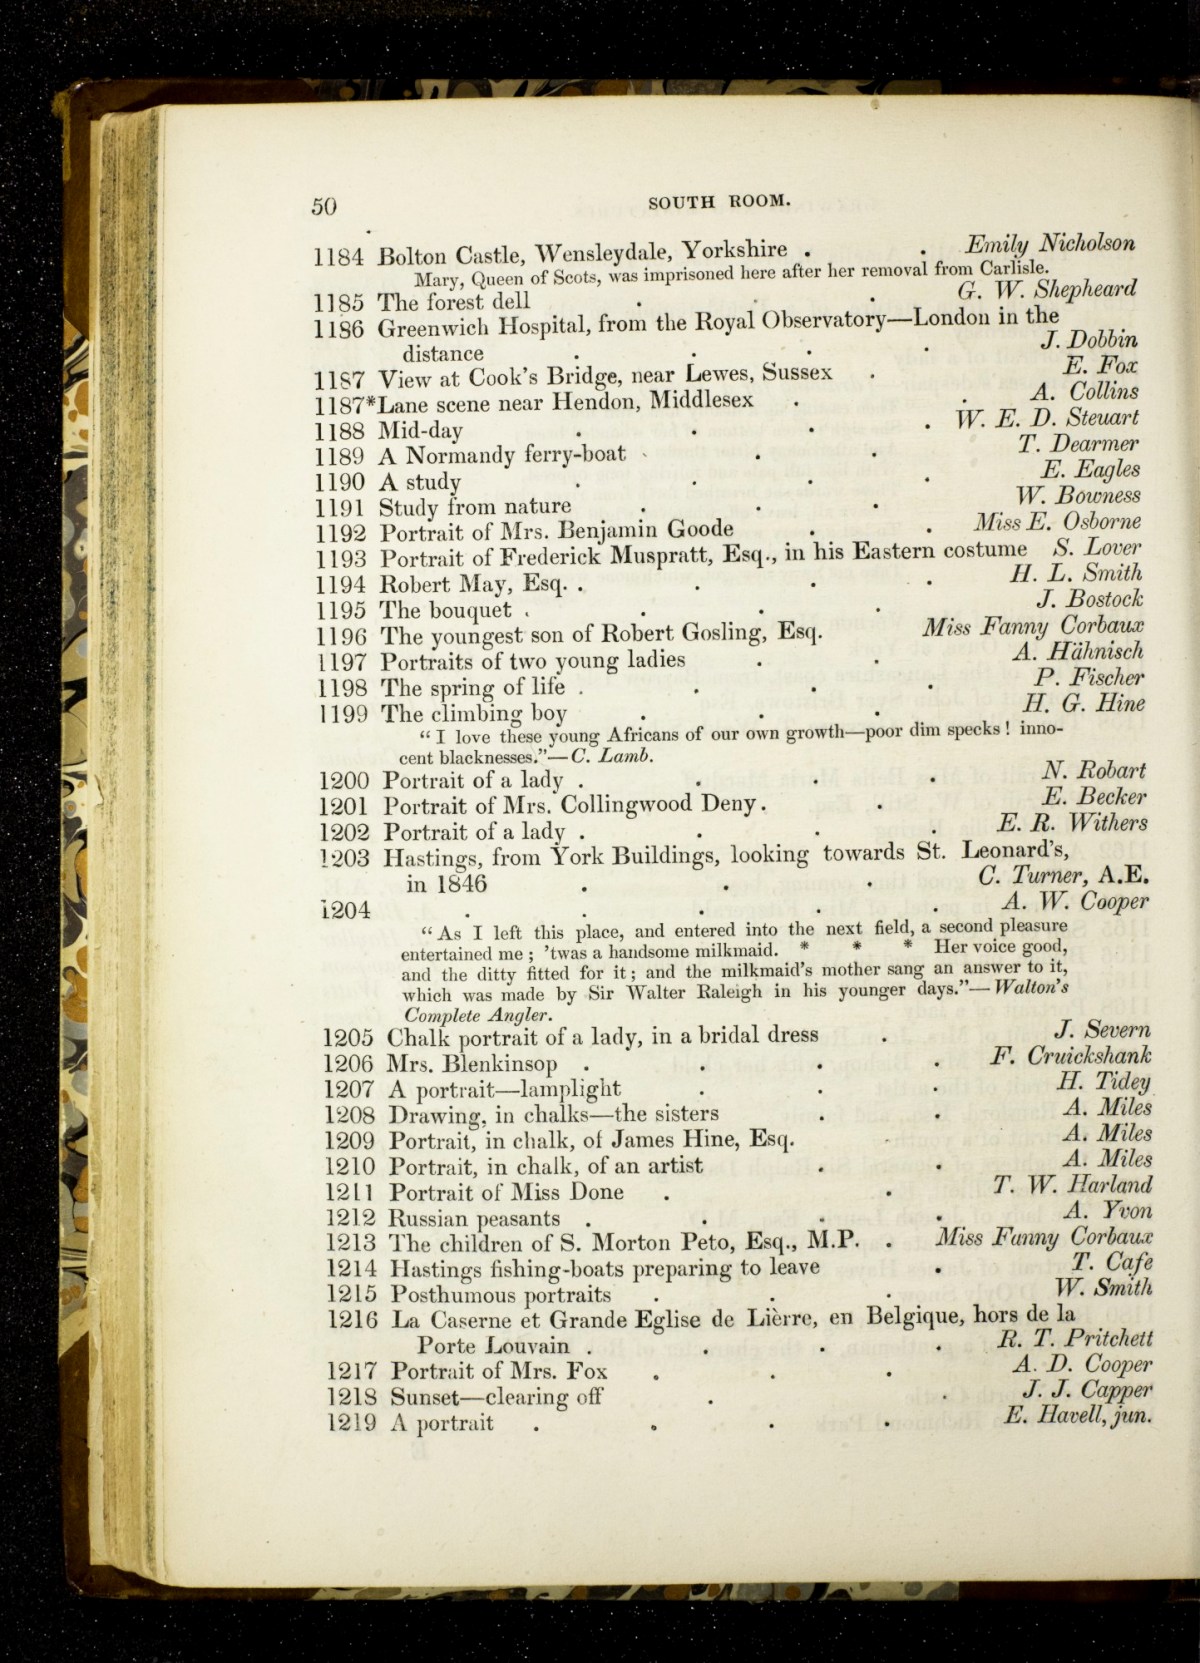 50 SOUTH ROOM.
1184 Bolton Castle, Wensleydale, Yorkshire . . Emily Nicholson
Mary, Queen of Scots, was imprisoned here after her removal from Carlisle.
1185 The forest dell . . . G. W. Shepheard
1186 Greenwich Hospital, from the Royal Observatory—London in the
distance . . . . J. Dobbin
1187 View at Cook's Bridge, near Lewes, Sussex . E. Fox
1187*Lane scene near Hendon, Middlesex . . A. Collins
1188 Mid-day . . . . W. E. D. Steuart
1189 A Normandy ferry-boat . . . T. Dearmer
1190 A study . . . . E. Eagles
1191 Study from nature . . . W. Bowness
1192 Portrait of Mrs. Benjamin Goode . . Miss E. Osborne
1193 Portrait of Frederick Muspratt, Esq., in his Eastern costume S. Lover
1194 Robert May, Esq. . . . . H. L. Smith
1195 The bouquet . . . . J. Bostock
1196 The youngest son of Robert Gosling, Esq. Miss Fanny Corbaux
1197 Portraits of two young ladies . . A. Hähnisch
1198 The spring of life . . . . P. Fischer
1199 The climbing boy . . . H. G. Hine
"I love these young Africans of our own growth—poor dim specks! inno-
cent blacknesses."—C. Lamb.
1200 Portrait of a lady . . . . N. Robart
1201 Portrait of Mrs. Collingwood Deny . . E. Becker
1202 Portrait of a lady . . . . E. R. Withers
1203 Hastings, from York Buildings, looking towards St. Leonard's,
in 1846 . . . C. Turner, A.E.
1204 . . . . . A. W. Cooper
"As I left this place, and entered into the next field, a second pleasure
entertained me; 'twas a handsome milkmaid. * * * Her voice good,
and the ditty fitted for it; and the milkmaid's mother sang an answer to it,
which was made by Sir Walter Raleigh in his younger days."—Walton's
Complete Angler.
1205 Chalk portrait of a lady, in a bridal dress . J. Severn
1206 Mrs. Blenkinsop . . . . F. Cruickshank
1207 A portrait—lamplight . . . H. Tidey
1208 Drawing, in chalks—the sisters . . A. Miles
1209 Portrait, in chalk, of James Hine, Esq. . A. Miles
1210 Portrait, in chalk, of an artist . . A. Miles
1211 Portrait of Miss Done . . T. W. Harland
1212 Russian peasants . . . . A. Yvon
1213 The children of S. Morton Peto, Esq., M.P. . Miss Fanny Corbaux
1214 Hastings fishing-boats preparing to leave . T. Cafe
1215 Posthumous portraits . . . W. Smith
1216 La Caserne et Grande Eglise de Lièrre, en Belgique, hors de la
Porte Louvain . . . . R. T. Pritchett
1217 Portrait of Mrs. Fox . . . A. D. Cooper
1218 Sunset—clearing off . . J. J. Capper
1219 A portrait . . . . E. Havell, jun.